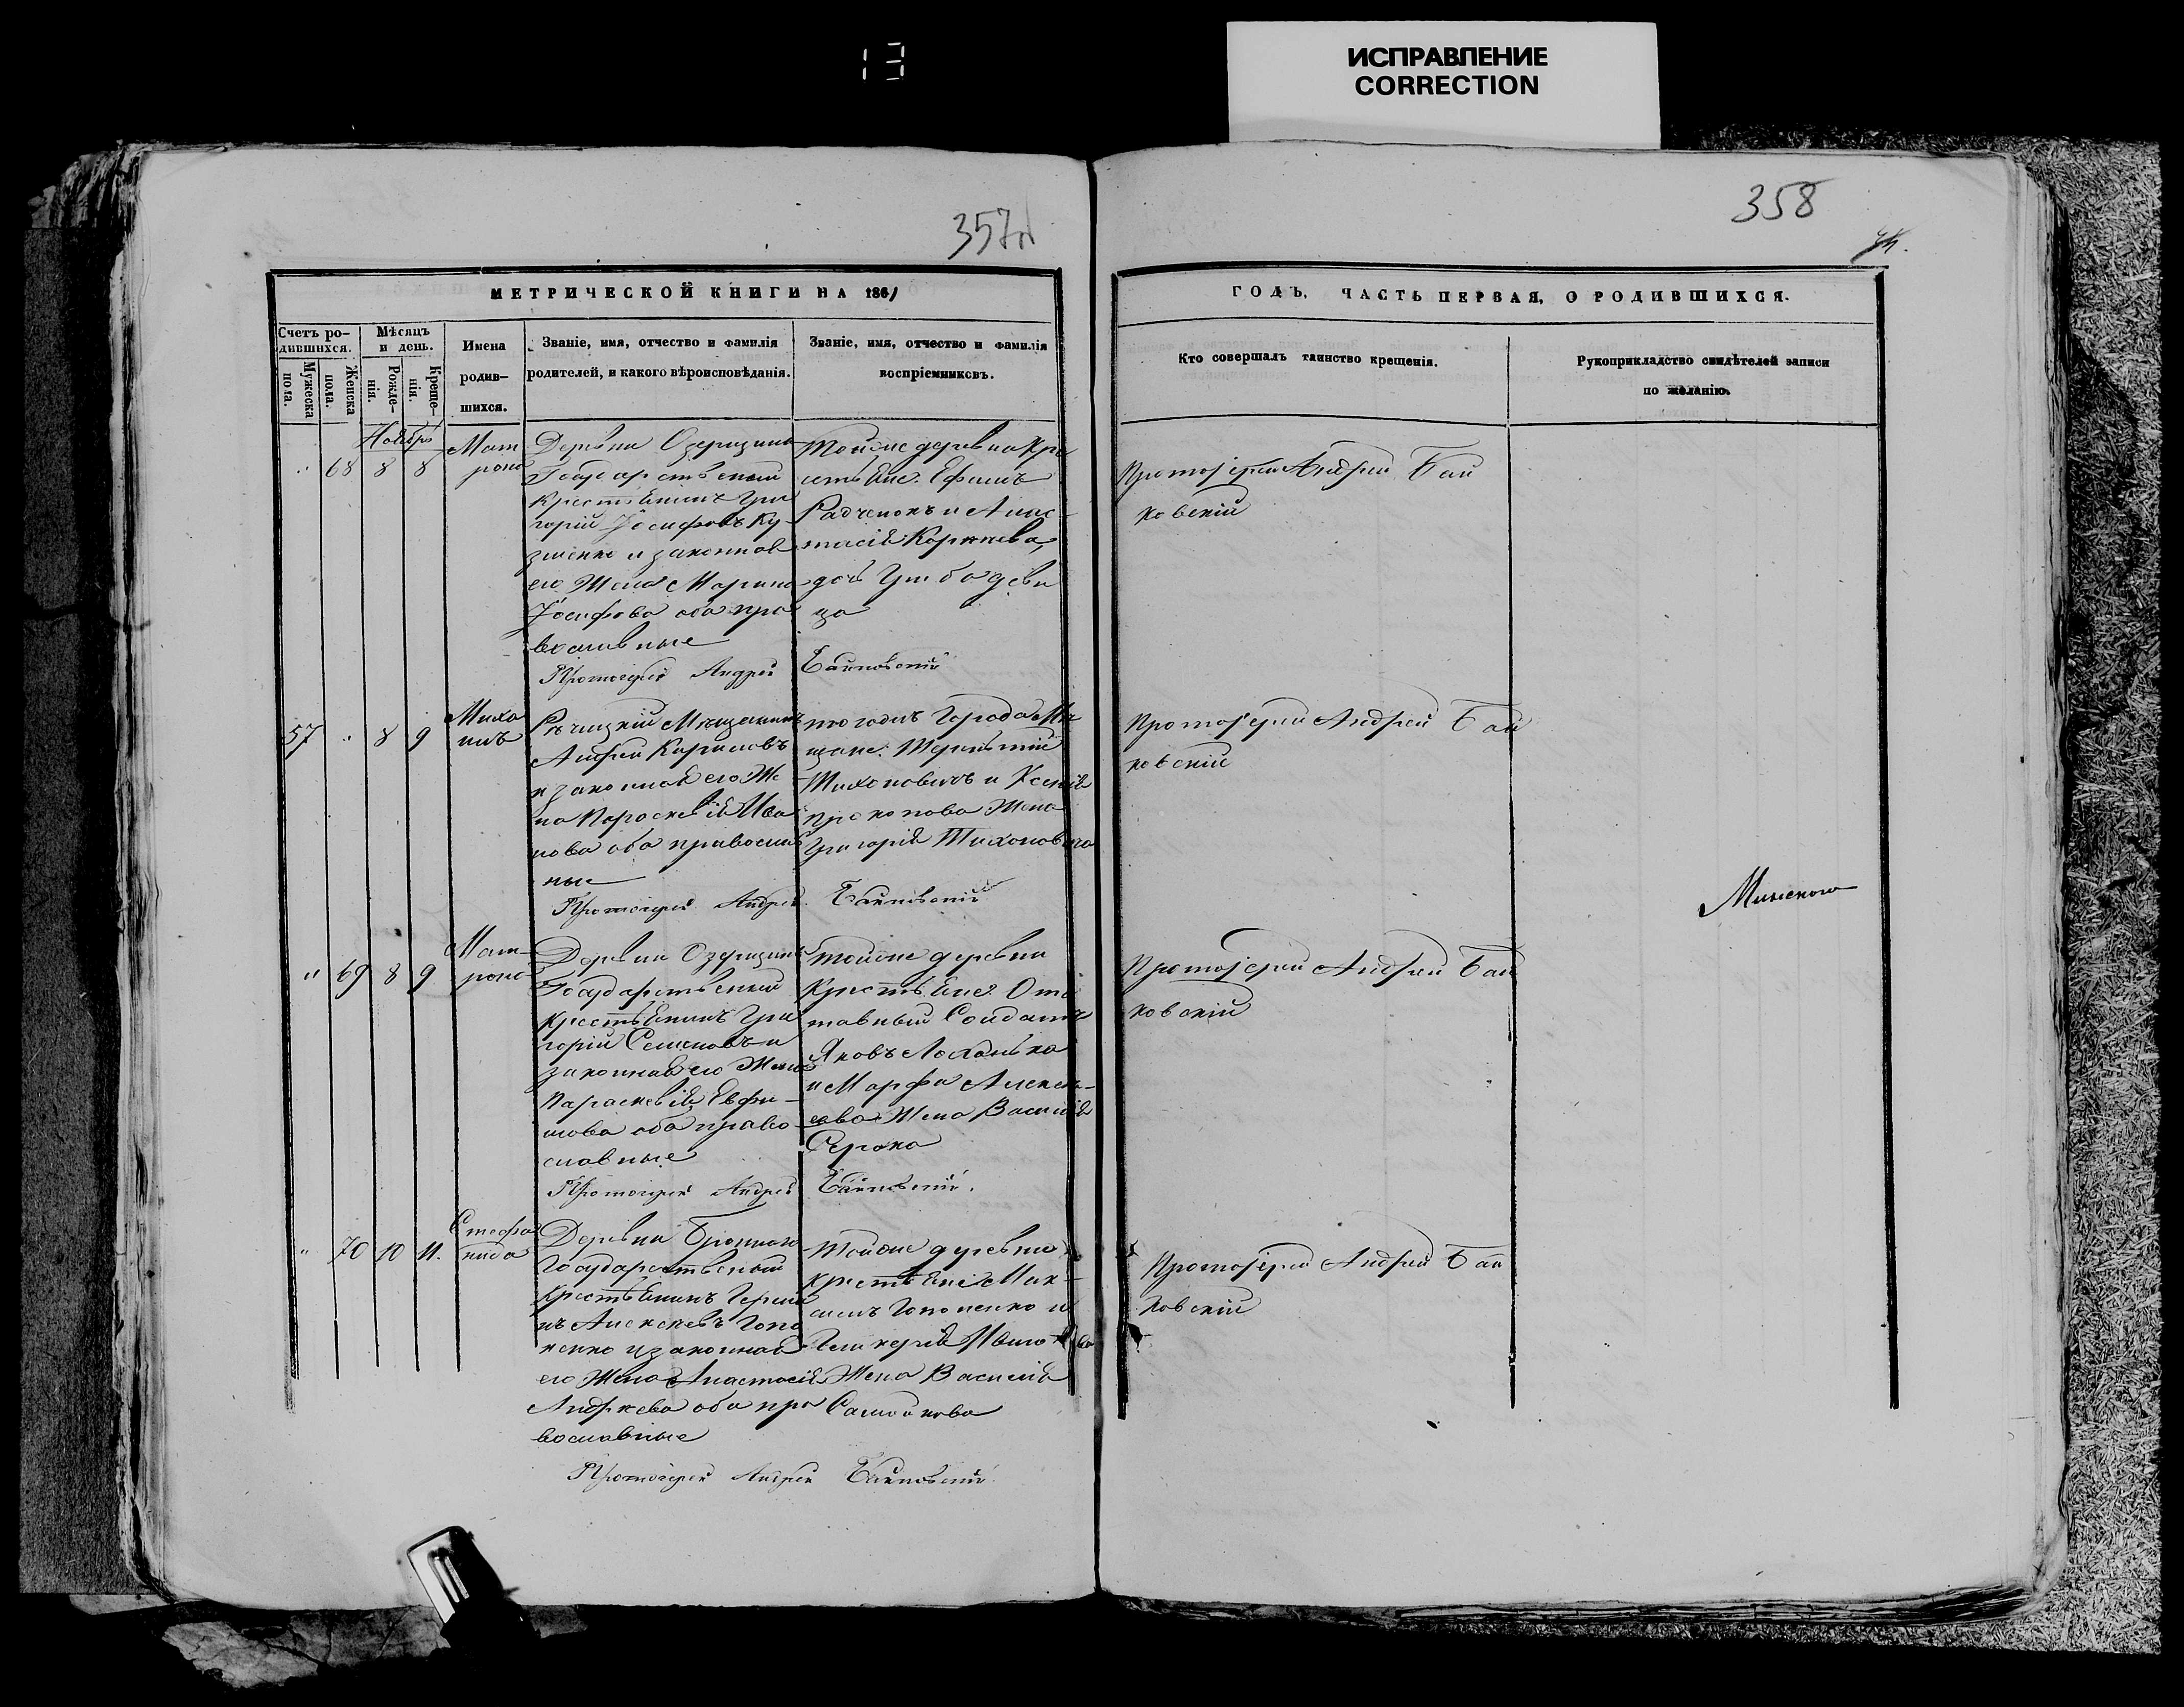 13
ИСПРАВЛЕНИЕ
CORRECTION
357
358
МЕТРИЧЕСКОЙ КНИГИ НА 1861
ГОДЪ, ЧАСТЬ ПЕРВАЯ, О РОДИВШИХСЯ.
Счетъ ро-
дившихся.
Мужеска
пола.
Женска
пола.
Мѣсяцъ
и день.
Рожде-
нія.
Креще-
нія.
Имена
родив-
шихся.
Званіе, имя, отчество и фамилія
родителей, и какого вѣроисповѣданія.
Званіе, имя, отчество и фамилія
воспріемниковъ.
Кто совершалъ таинство крещенія.
Рукоприкладство свидѣтелей записи
по желанію.
Ноябрь
" 68 8 8
Мат
рона
Деревни Озерщины
Государственный
Крестьянинъ Гри
горій Іосифовъ Ку-
зменко и законная
его Жена Марина
Іосифова оба пра
вославные
Тойже деревни Кре
стьяне: Ефимъ
Радченокъ и Анас-
тасія Корнѣева,
дочь деви
ца
Протоіерей Андрей Байковскій
Протоіерей Андрей Бай
ковскій
57 " 8 9
Миха
илъ
Рѣчицкій Мѣщанинъ
Андрей Кириловъ
и законная его Же
на Параскевія Ива
нова оба православ
ные
того жъ Города Мѣ
щане: Терентій
Тихоновичъ и Ксенія
Прокопова Жена
Григорія Тихоновича
Протоіерей Андрей Байковскій
Протоіерей Андрей Бай
ковскій
Минского
" 69 8 9
Мат-
рона
Деревни Озерщины
Государственный
Крестьянинъ Гри
горій Семеновъ и
законная его Жена
Параскевія Евфи-
мова оба право
славные
Тойже деревни
Крестьяне: Отс
тавный Солдатъ
Яковъ
и Марфа Алексе-
ева Жена Василія
Серака
Протоіерей Андрей Байковскій.
Протоіерей Андрей Бай
ковскій
" 70 10 11.
Стефа
нида
Деревни Броннаго
Государственный
Крестьянинъ
Алексеевъ Гапо
ненко и законная
его Жена Анастасія
Андреева оба пра
вославные
Тойже деревни
Крестьяне Мак-
симъ Гапоненко и
Гликерія
Жена Василія
Самойлова
Протоіерей Андрей Байковскій
Протоіерей Андрей Бай
ковскій